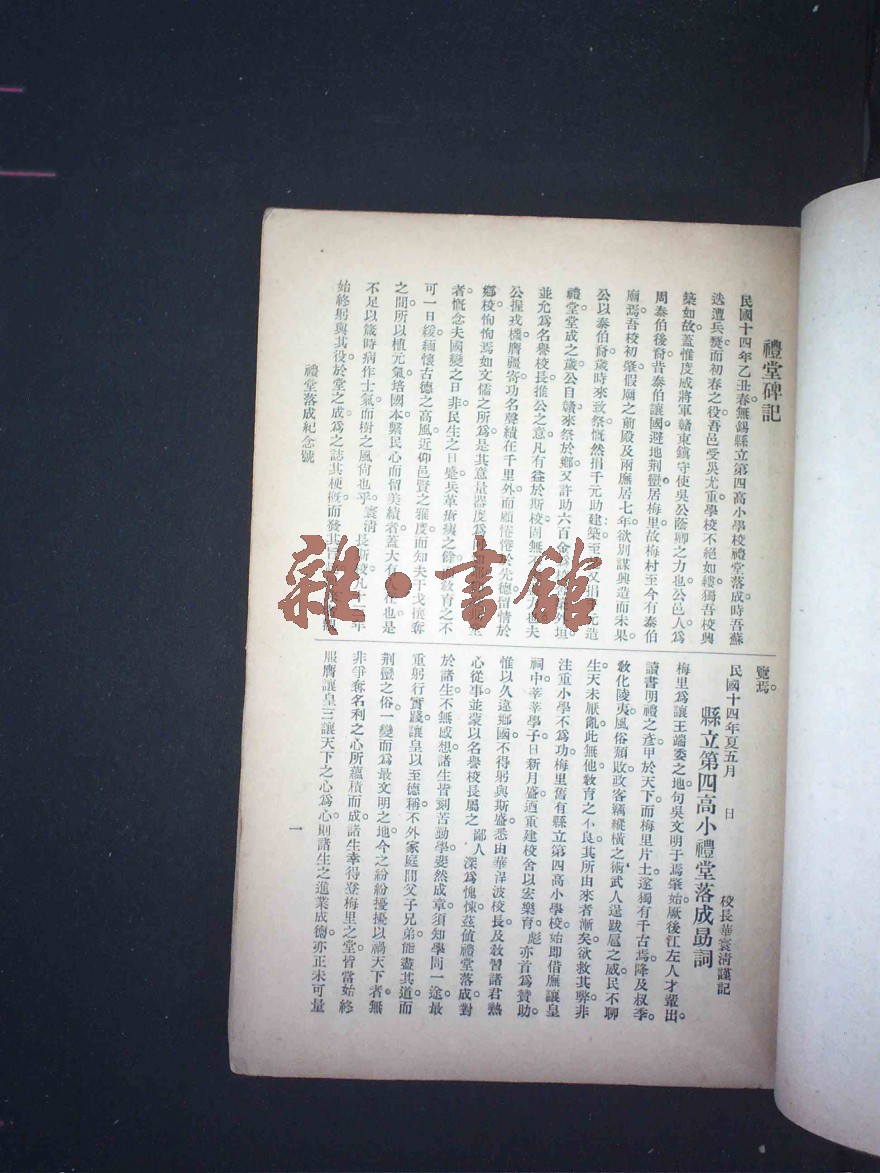 禮堂碑記
民國十四年乙丑春。無錫縣立第四高小學校禮堂落成。時吾蘇
迭遭兵燹。而初春之役。吾邑受災尤重。學校不絕如縷。獨吾校興
築如故。蓋惟度威將軍贛東鎮守使吳公蔭卿之力也。公邑人。爲
周泰伯後裔。昔泰伯讓國。避地荆蠻。居梅里。故梅村至今有泰伯
廟焉。吾校初肇。假廟之前殿及兩廡。居七年。欲別謀興造而未果。
公以泰伯裔。歲時來致祭。慨然捐千元助建築。至
禮堂。堂成之歲。公自贛來祭於鄉。又許助六百金
並允爲名譽校長。推公之意。凡有益於斯校。固無
公握戎機。膺疆寄。功名聲績在千里外。而顧惓惓於先德。留情於
鄉校。恂恂焉如文儒之所爲。是其意量器度。爲
者。慨念夫國變之日。非民生之日蹙。兵革瘡痍之餘
可一日緩。緬懷古德之高風。近仰邑賢之雅度。而知夫干戈攘奪
之間。所以植元氣。培國本。繫民心。而留美績者。蓋大有人在也。是
不足以箴時病。作士氣。而樹之風尙也乎。寰清長斯校九
始終躬與其役。於堂之成。爲之誌其梗概。而發其
禮堂落成紀念號
覽焉。
民國十四年夏五月　日
校長華寰清謹記
縣立第四高小禮堂落成勗詞
梅里爲讓王端委之地。句吳文明于焉肇始。厥後江左人才輩出。
讀書明禮之彥。甲於天下。而梅里片土。遂獨有千古焉。降及叔季。
敎化陵夷。風俗頹敗。政客竊縱橫之術。武人逞跋扈之威。民不聊
生。天未厭亂。此無他。敎育之不良。其所由來者漸矣。欲救其弊。非
注重小學不爲功。梅里舊有縣立第四高小學校。始卽借廡讓皇
祠中。莘莘學子。日新月盛。迺重建校舍。以宏樂育。彪亦首爲贊助。
惟以久違鄉國。不得躬與斯盛。悉由華淠波校長及敎習諸君熱
心從事。並蒙以名譽校長屬之鄙人。深爲愧悚。茲值禮堂落成。對
於諸生不無感想。諸生皆刻苦勤學。斐然成章。須知學問一途。最
重躬行實踐。讓皇以至德稱。不外家庭間父子兄弟。能盡其道。而
荆蠻之俗。一變而爲最文明之地。今之紛紛擾擾以禍天下者。無
非爭奪名利之心所蘊積而成。諸生幸得登梅里之堂。皆當始終
服膺讓皇三讓天下之心爲心。則諸生之進業成德。亦正未可量
一
雜·書館